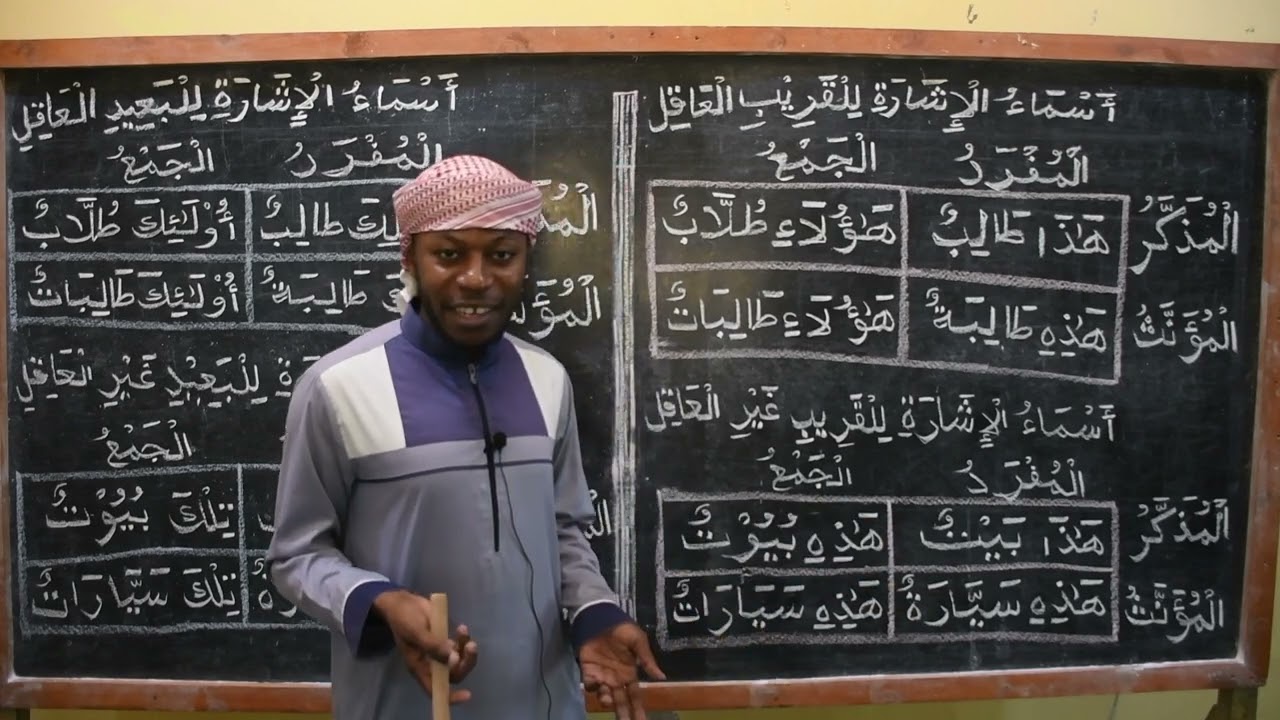 أَسْمَاءُ الْإِشَارَةِ لِلْقَرِيْبِ الْعَاقِلِ
الْمُفْرَدُ الْجَمْعُ
الْمُذَكَّرُ هَٰذَا طَالِبٌ هَٰؤُلَاءِ طُلَّابٌ
الْمُؤَنَّثُ هَٰذِهِ طَالِبَةٌ هَٰؤُلَاءِ طَالِبَاتٌ
أَسْمَاءُ الْإِشَارَةِ لِلْقَرِيْبِ غَيْرِ الْعَاقِلِ
الْمُفْرَدُ الْجَمْعُ
الْمُذَكَّرُ هَٰذَا بَيْتٌ هَٰذِهِ بُيُوْتٌ
الْمُؤَنَّثُ هَٰذِهِ سَيَّارَةٌ هَٰذِهِ سَيَّارَاتٌ
أَسْمَاءُ الْإِشَارَةِ لِلْبَعِيْدِ الْعَاقِلِ
الْمُفْرَدُ الْجَمْعُ
طَالِبٌ أُوْلَٰئِكَ طُلَّابٌ
طَالِبَةٌ أُوْلَٰئِكَ طَالِبَاتٌ
لِلْبَعِيْدِ غَيْرِ الْعَاقِلِ
الْجَمْعُ
تِلْكَ بُيُوْتٌ
تِلْكَ سَيَّارَاتٌ